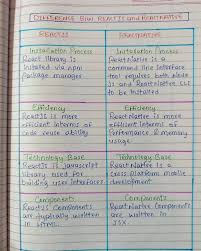 DIFFERENCE B/W REACTJS and REACTNATIVE
REACTJS
REACTNATIVE
Installation Process
React library is
installed via npm
package manager
Installation Process
React Native is a
command line interface
tool requires both Node
Js and React Native CLI
to be installed
Efficiency
ReactJS is more
efficient in terms of
code reusability
Efficiency
React Native is more
efficient in terms of
Performance & memory
usage.
Technology Base
ReactJs is Javascript
library used for
building user interfaces
Technology Base
React Native is a
cross platform mobile
development
Components
ReactJs Components
are typically written
in HTML.
Components
React Native Components
are written in
JSX